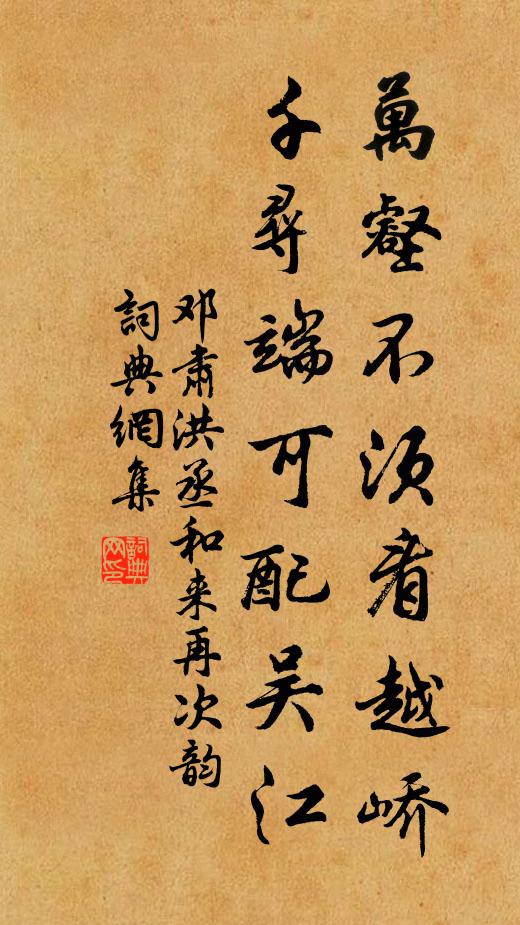 萬壑不須看越嶠
千尋端可配吴江
邓肅洪丞和来再次韵
詞典網集
詞典网印